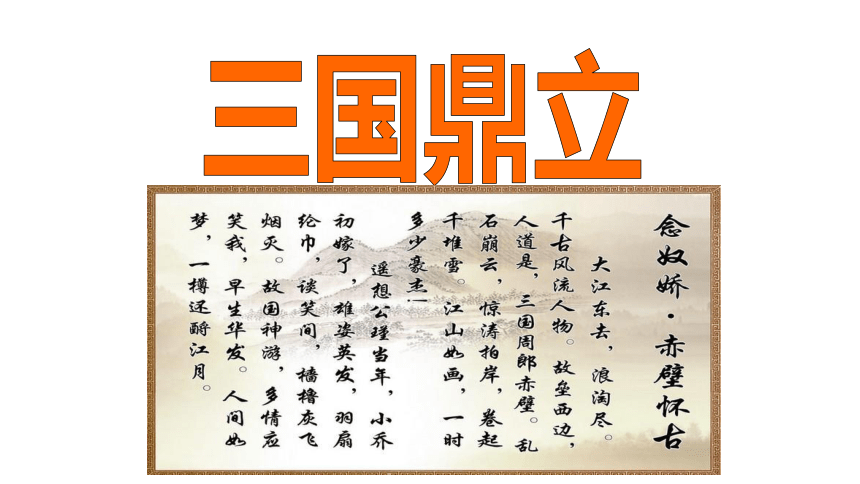 三国鼎立
念奴娇·赤壁怀古
大江东去，浪淘尽。
千古风流人物。故垒西边，
人道是，三国周郎赤壁。乱
石崩云，惊涛拍岸，卷起
千堆雪。江山如画，一时
多少豪杰！
遥想公瑾当年，小乔
初嫁了，雄姿英发，羽扇
纶巾，谈笑间，樯橹灰飞
烟灭。故国神游，多情应
笑我，早生华发。人间如
梦，一樽还酹江月。